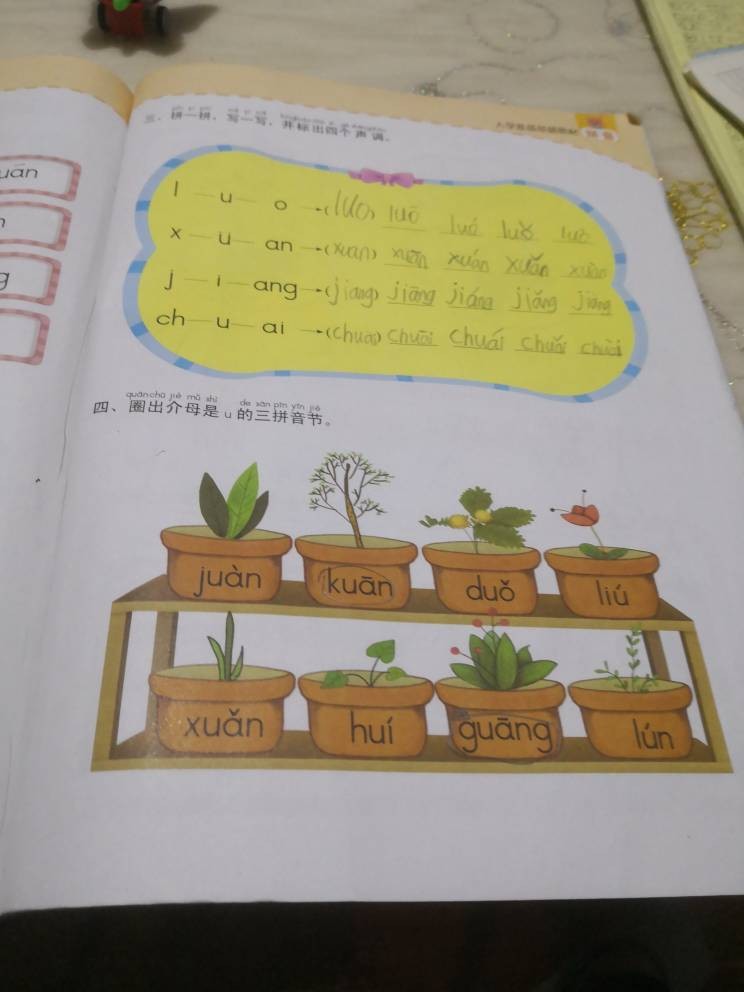 uān
g
三、拼一拼，写一写，并标出四个声调。
l — u — o →(luo) luō luó luǒ luò
x — ü — an →(xuan) xuān xuán xuǎn xuàn
j — i — ang →(jiang) jiāng jiáng jiǎng jiàng
ch — u — ai →(chuai) chuāi chuái chuǎi chuài
quān chū jiè mǔ shì de sān pīn yīn jié
四、圈出介母是 u 的三拼音节。
juàn kuān duǒ liú
xuǎn huí guāng lún